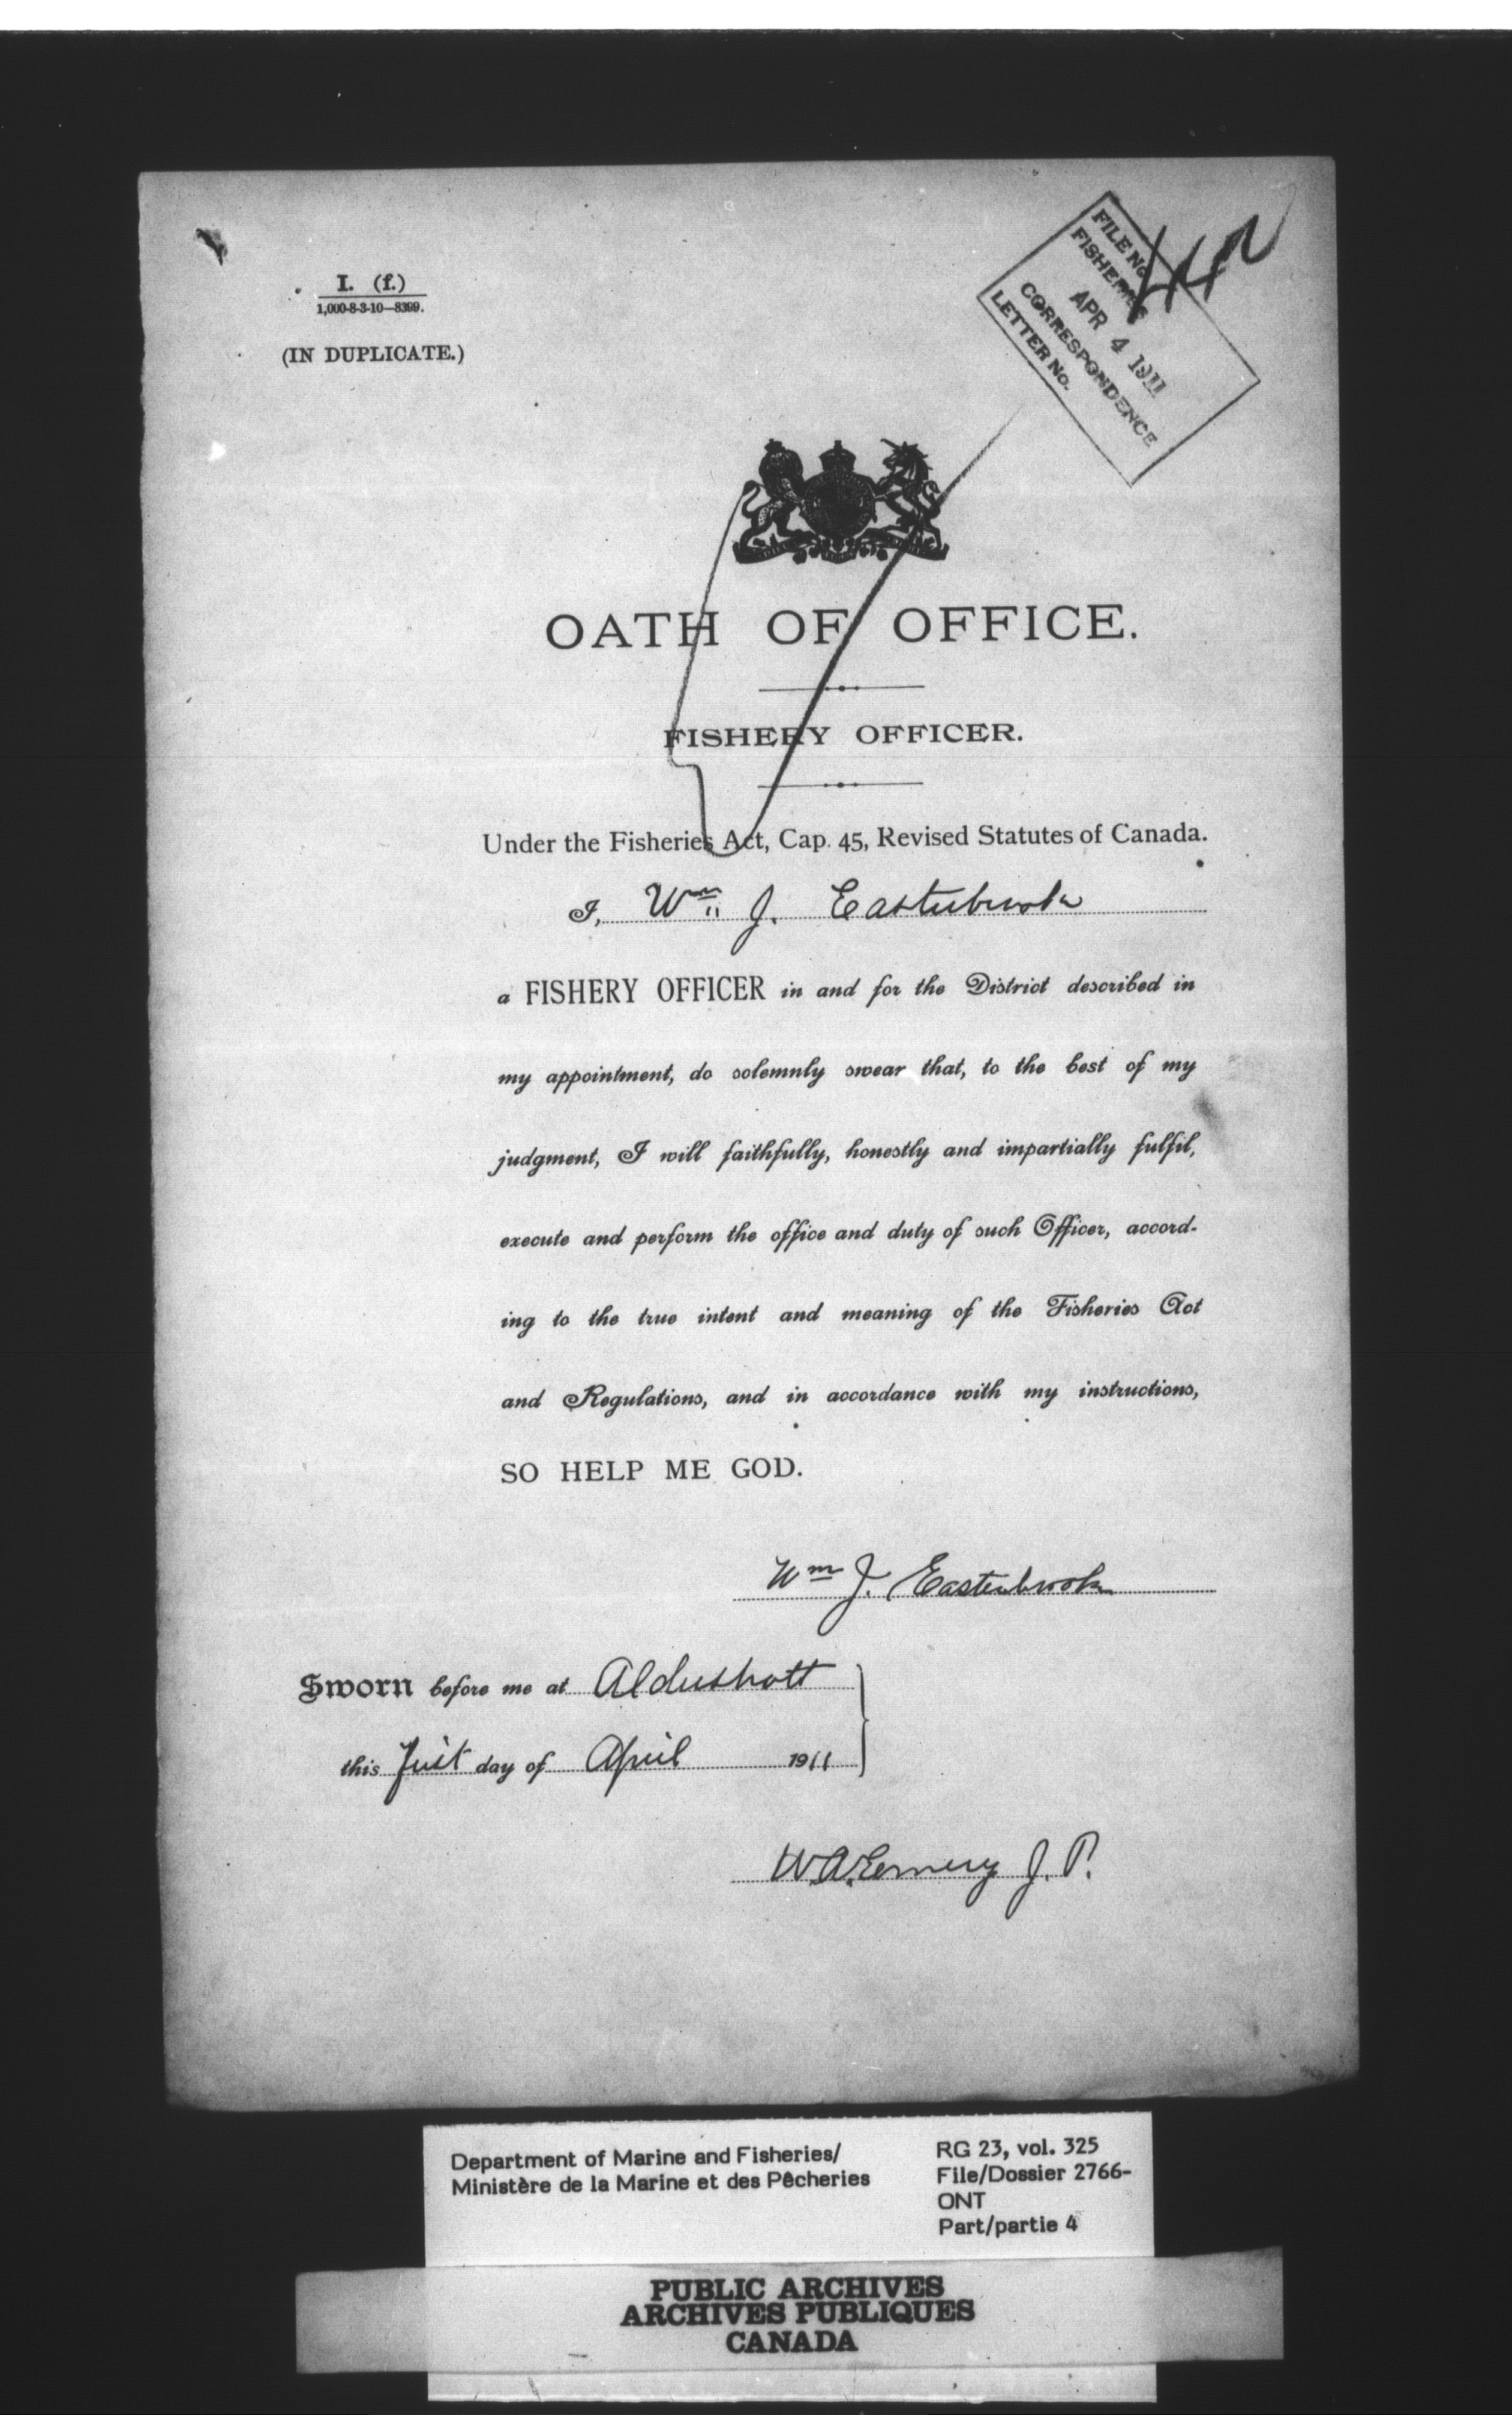 I. (f.)
1,000-8-3-10—8399.
(IN DUPLICATE.)
FILE No.
FISHERIES
APR 4 1911
CORRESPONDENCE
LETTER No.
OATH OF OFFICE.
FISHERY OFFICER.
Under the Fisheries Act, Cap. 45, Revised Statutes of Canada.
I, Wm J. Easterbrook
a FISHERY OFFICER in and for the District described in
my appointment, do solemnly swear that, to the best of my
judgment, I will faithfully, honestly and impartially fulfil,
execute and perform the office and duty of such Officer, accord-
ing to the true intent and meaning of the Fisheries Act
and Regulations, and in accordance with my instructions,
SO HELP ME GOD.
Wm J. Easterbrook
Sworn before me at Aldershott
this First day of April 1911
W.A. Emery J.P.
Department of Marine and Fisheries/
Ministère de la Marine et des Pêcheries
RG 23, vol. 325
File/Dossier 2766-
ONT
Part/partie 4
PUBLIC ARCHIVES
ARCHIVES PUBLIQUES
CANADA